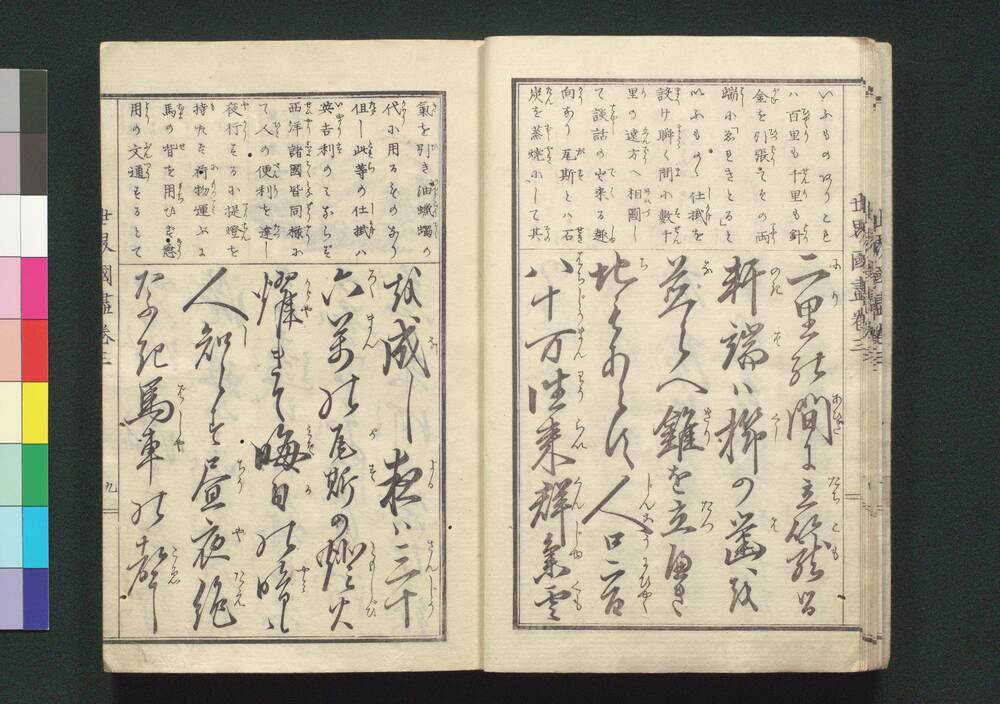 いふものありこれ
ハ百里も千里も針
金を引張てその両
端に「ゑれきとる」と
いふもの〻仕掛を
設け瞬く間に數千
里の遠方へ相圖し
て談話の出来る趣
向あり瓦斯とハ石
炭を蒸焼にして其
二里の間に立続る
軒端ハ櫛の歯を
並らへ錐を立へき
地もあらす人口二百
八十万往来群集雲
世界國盡巻三
氣を引き油蝋燭の
代に用るものなり
但し此等の仕掛ハ
英吉利のみならす
西洋諸國皆同様に
て人の便利を達し
夜行するに提燈を
持た��荷物運ぶに
馬の背を用ひず急
用の文通をるとて
を成し夜ハ三十
六万の瓦斯の燈火
耀きて晦日の暗も
人知らす昼夜絶
なき馬車の聲
世界國盡巻三
九